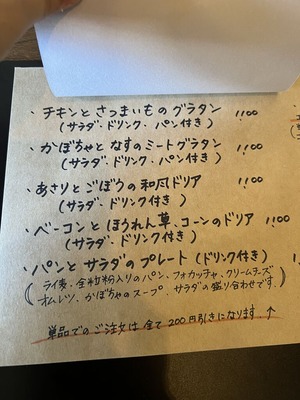 ・チキンとさつまいものグラタン 1100
(サラダ・ドリンク・パン付き)
・かぼちゃとなすのミートグラタン 1100
(サラダ・ドリンク・パン付き)
・あさりとごぼうの和風ドリア 1100
(サラダ・ドリンク付き)
・ベーコンとほうれん草・コーンのドリア 1100
(サラダ・ドリンク付き)
・パンとサラダのプレート(ドリンク付き)
(ライ麦・全粒粉入りのパン、フォカッチャ、クリームチーズ
オムレツ、かぼちゃのスープ、サラダの盛り合わせです。)
単品でのご注文は全て200円引きになります ↑